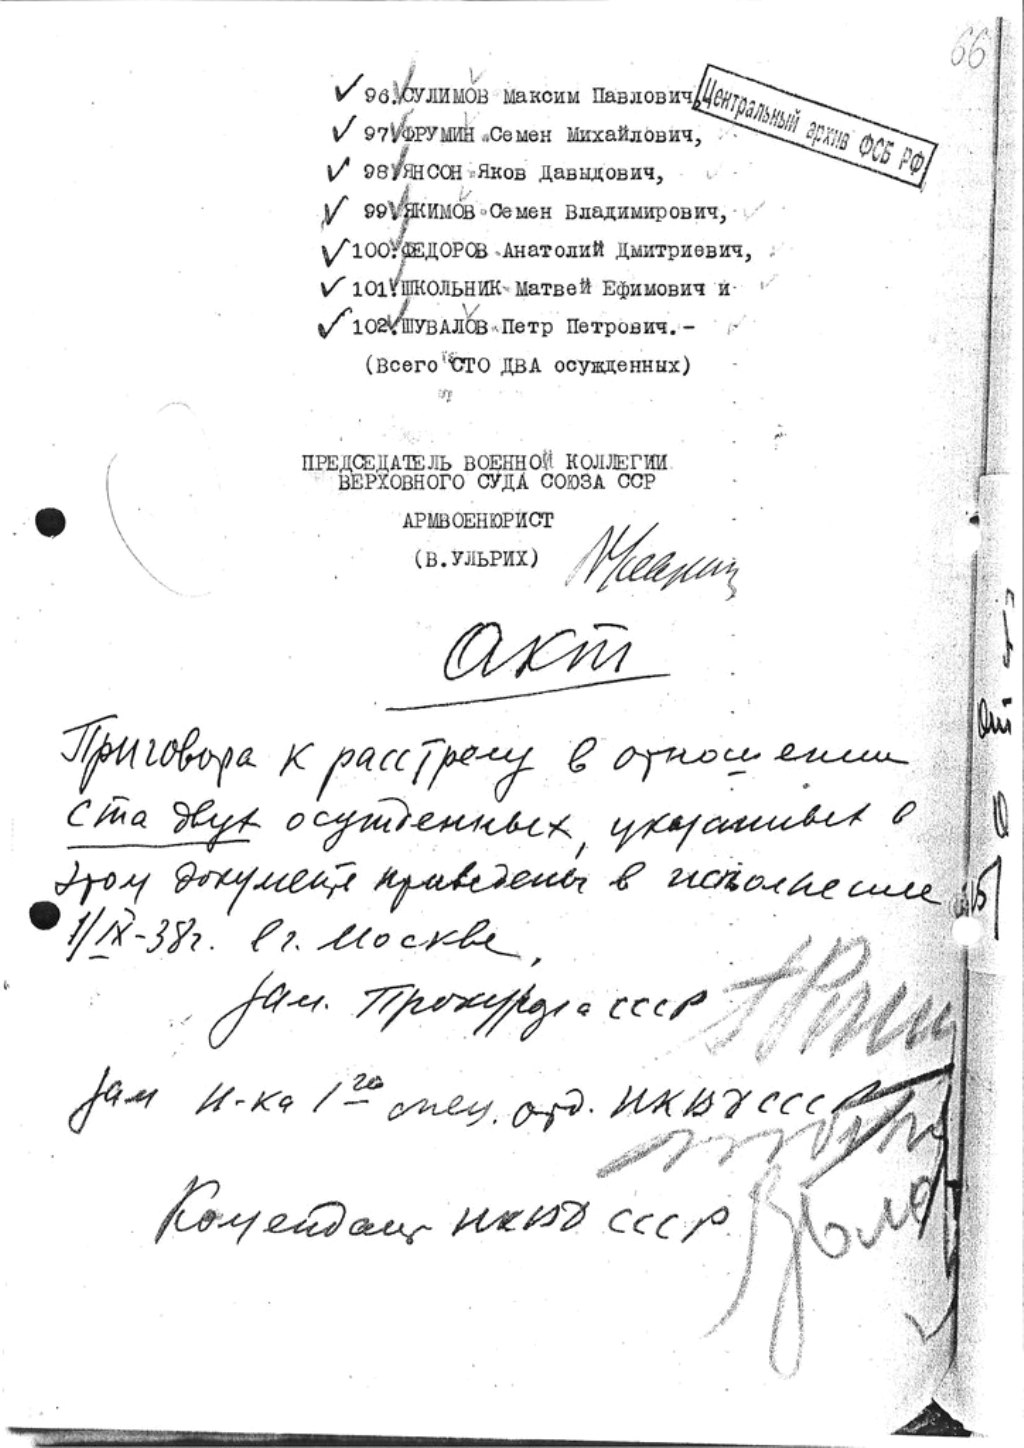 66
96. СУЛИМОВ Максим Павлович,
Центральный архив ФСБ РФ
97. ФРУМИН Семен Михайлович,
98. ЯНСОН Яков Давыдович,
99. ЯКИМОВ Семен Владимирович,
100. ФЕДОРОВ Анатолий Дмитриевич,
101. ШКОЛЬНИК Матвей Ефимович и
102. ШУВАЛОВ Петр Петрович.-
(Всего СТО ДВА осужденных)
ПРЕДСЕДАТЕЛЬ ВОЕННОЙ КОЛЛЕГИИ
ВЕРХОВНОГО СУДА СОЮЗА ССР
АРМВОЕНЮРИСТ
(В.УЛЬРИХ)
Акт
Приговора к расстрелу в отношении
ста двух осужденных, указанных в
этом документе приведены в исполнение
1/IX-38г. в г. Москве,
Зам. Прокурора СССР
Зам н-ка 1го спец. отд. НКВД СССР
Комендант НКВД СССР